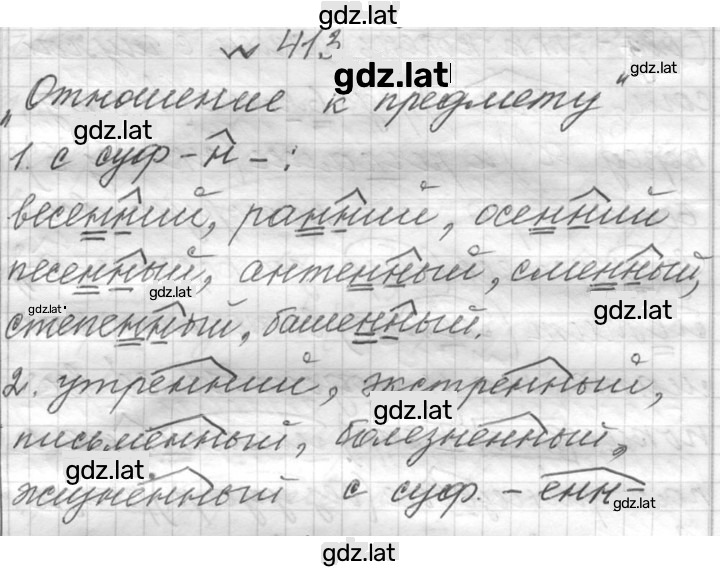 gdz.lat
№ 413
gdz.lat
gdz.lat
„Отношение к предмету"
gdz.lat
1. с суф - н - :
весенний, ранний, осенний
песенный, антенный, сменный,
gdz.lat
gdz.lat
gdz.lat
степенный, башенный.
2. утренний, экстренный,
gdz.lat
письменный, болезненный,
gdz.lat
жизненный с суф. - енн-
gdz.lat
gdz.lat